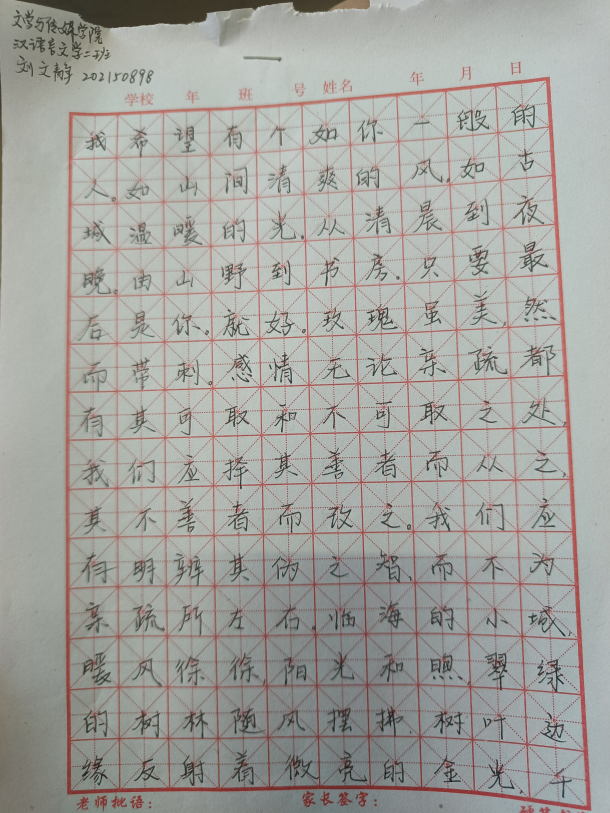 文学与传媒学院
汉语言文学二班
刘文静 202150898
学校 年 班 号 姓名 年 月 日
我希望有个如你一般的
人。如山间清爽的风,如古
城温暖的光,从清晨到夜
晚,由山野到书房,只要最
后是你。就好。玫瑰虽美,然
而带刺。感情无论亲疏都
有其可取和不可取之处,
我们应择其善者而从之,
其不善者而改之。我们应
有明辨其伪之智,而不为
亲疏所左右。临海的小城,
暖风徐徐,阳光和煦,翠绿
的树林随风摆拂,树叶边
缘反射着微亮的金光,千
老师批语: 家长签字: